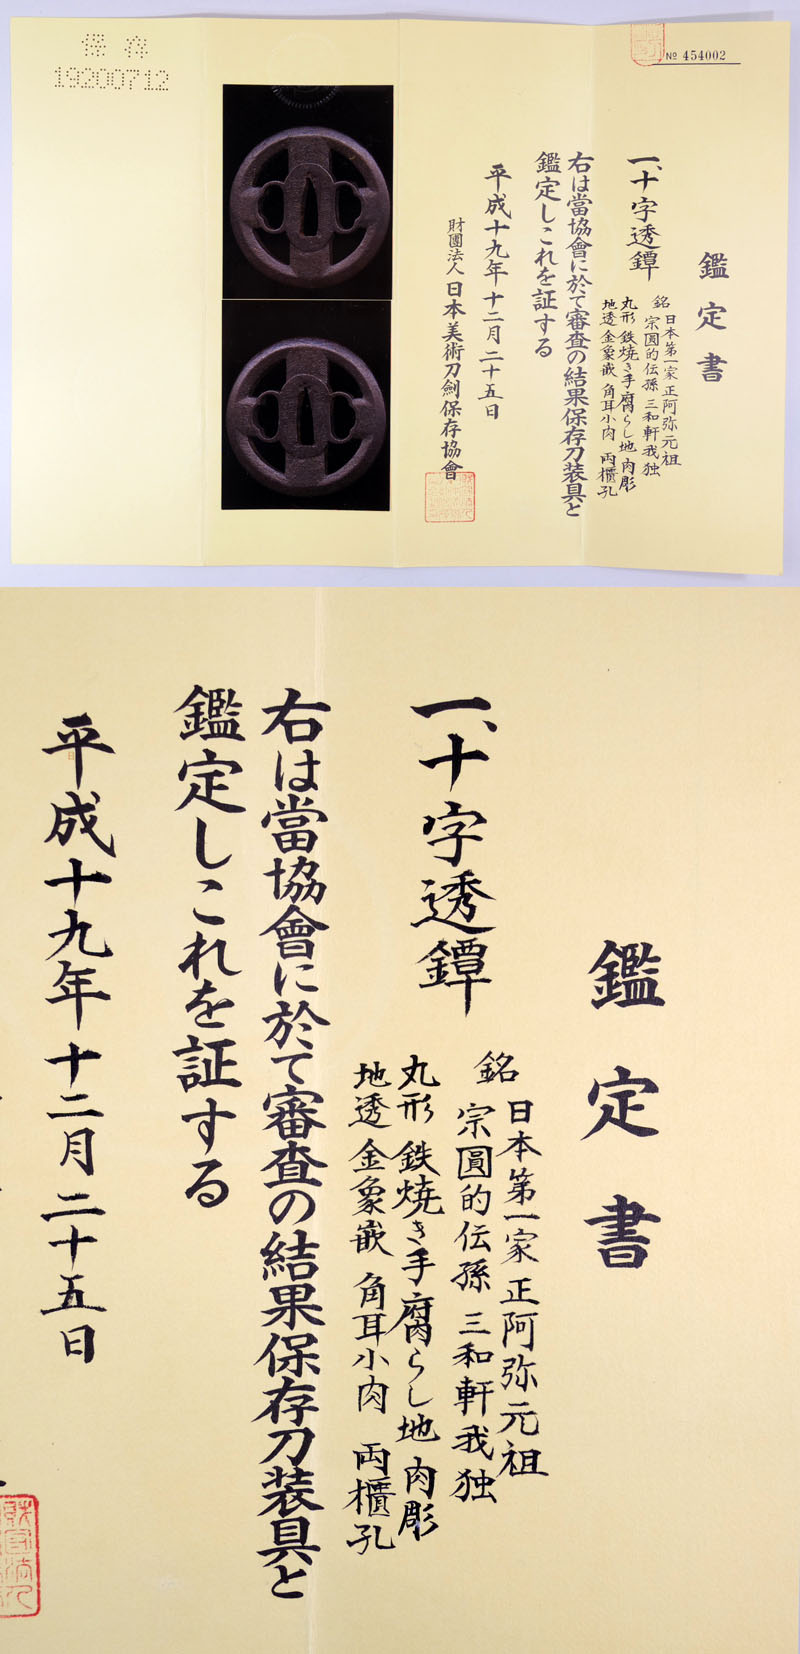 保存
19200712
No 454002
鑑定書
一、十字透鐔
銘 日本第一家正阿弥元祖
宗圓的伝孫 三和軒我独
丸形 鉄焼き手腐らし地 肉彫
地透 金象嵌 角耳小肉 両櫃孔
右は當協會に於て審査の結果保存刀装具と
鑑定しこれを証する
平成十九年十二月二十五日
財團法人日本美術刀劍保存協會
鑑定書
一、十字透鐔
銘 日本第一家正阿弥元祖
宗圓的伝孫 三和軒我独
丸形 鉄焼き手腐らし地 肉彫
地透 金象嵌 角耳小肉 両櫃孔
右は當協會に於て審査の結果保存刀装具と
鑑定しこれを証する
平成十九年十二月二十五日